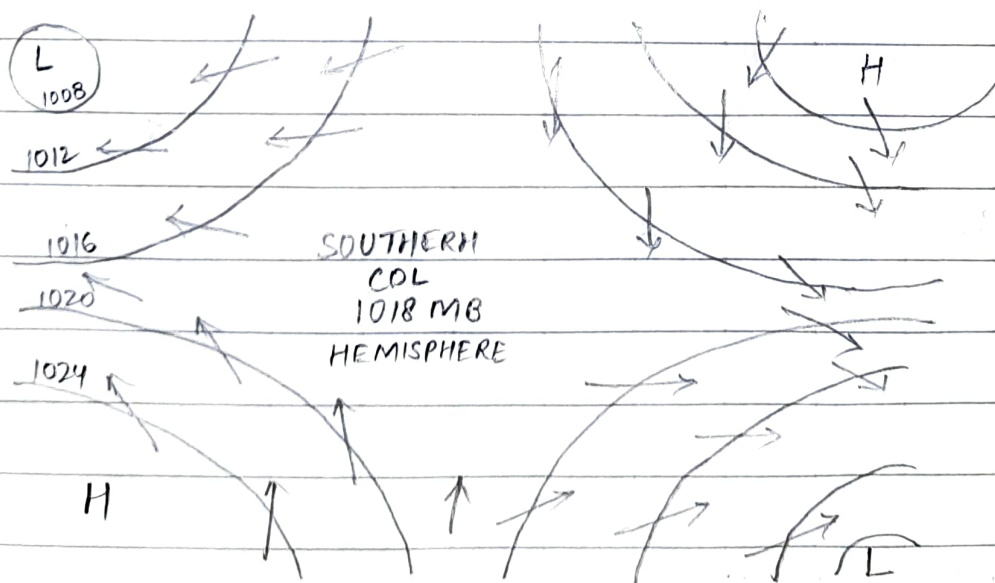 L
1008
H
1012
1016
SOUTHERN
COL
1020
1018 MB
HEMISPHERE
1024
H
L